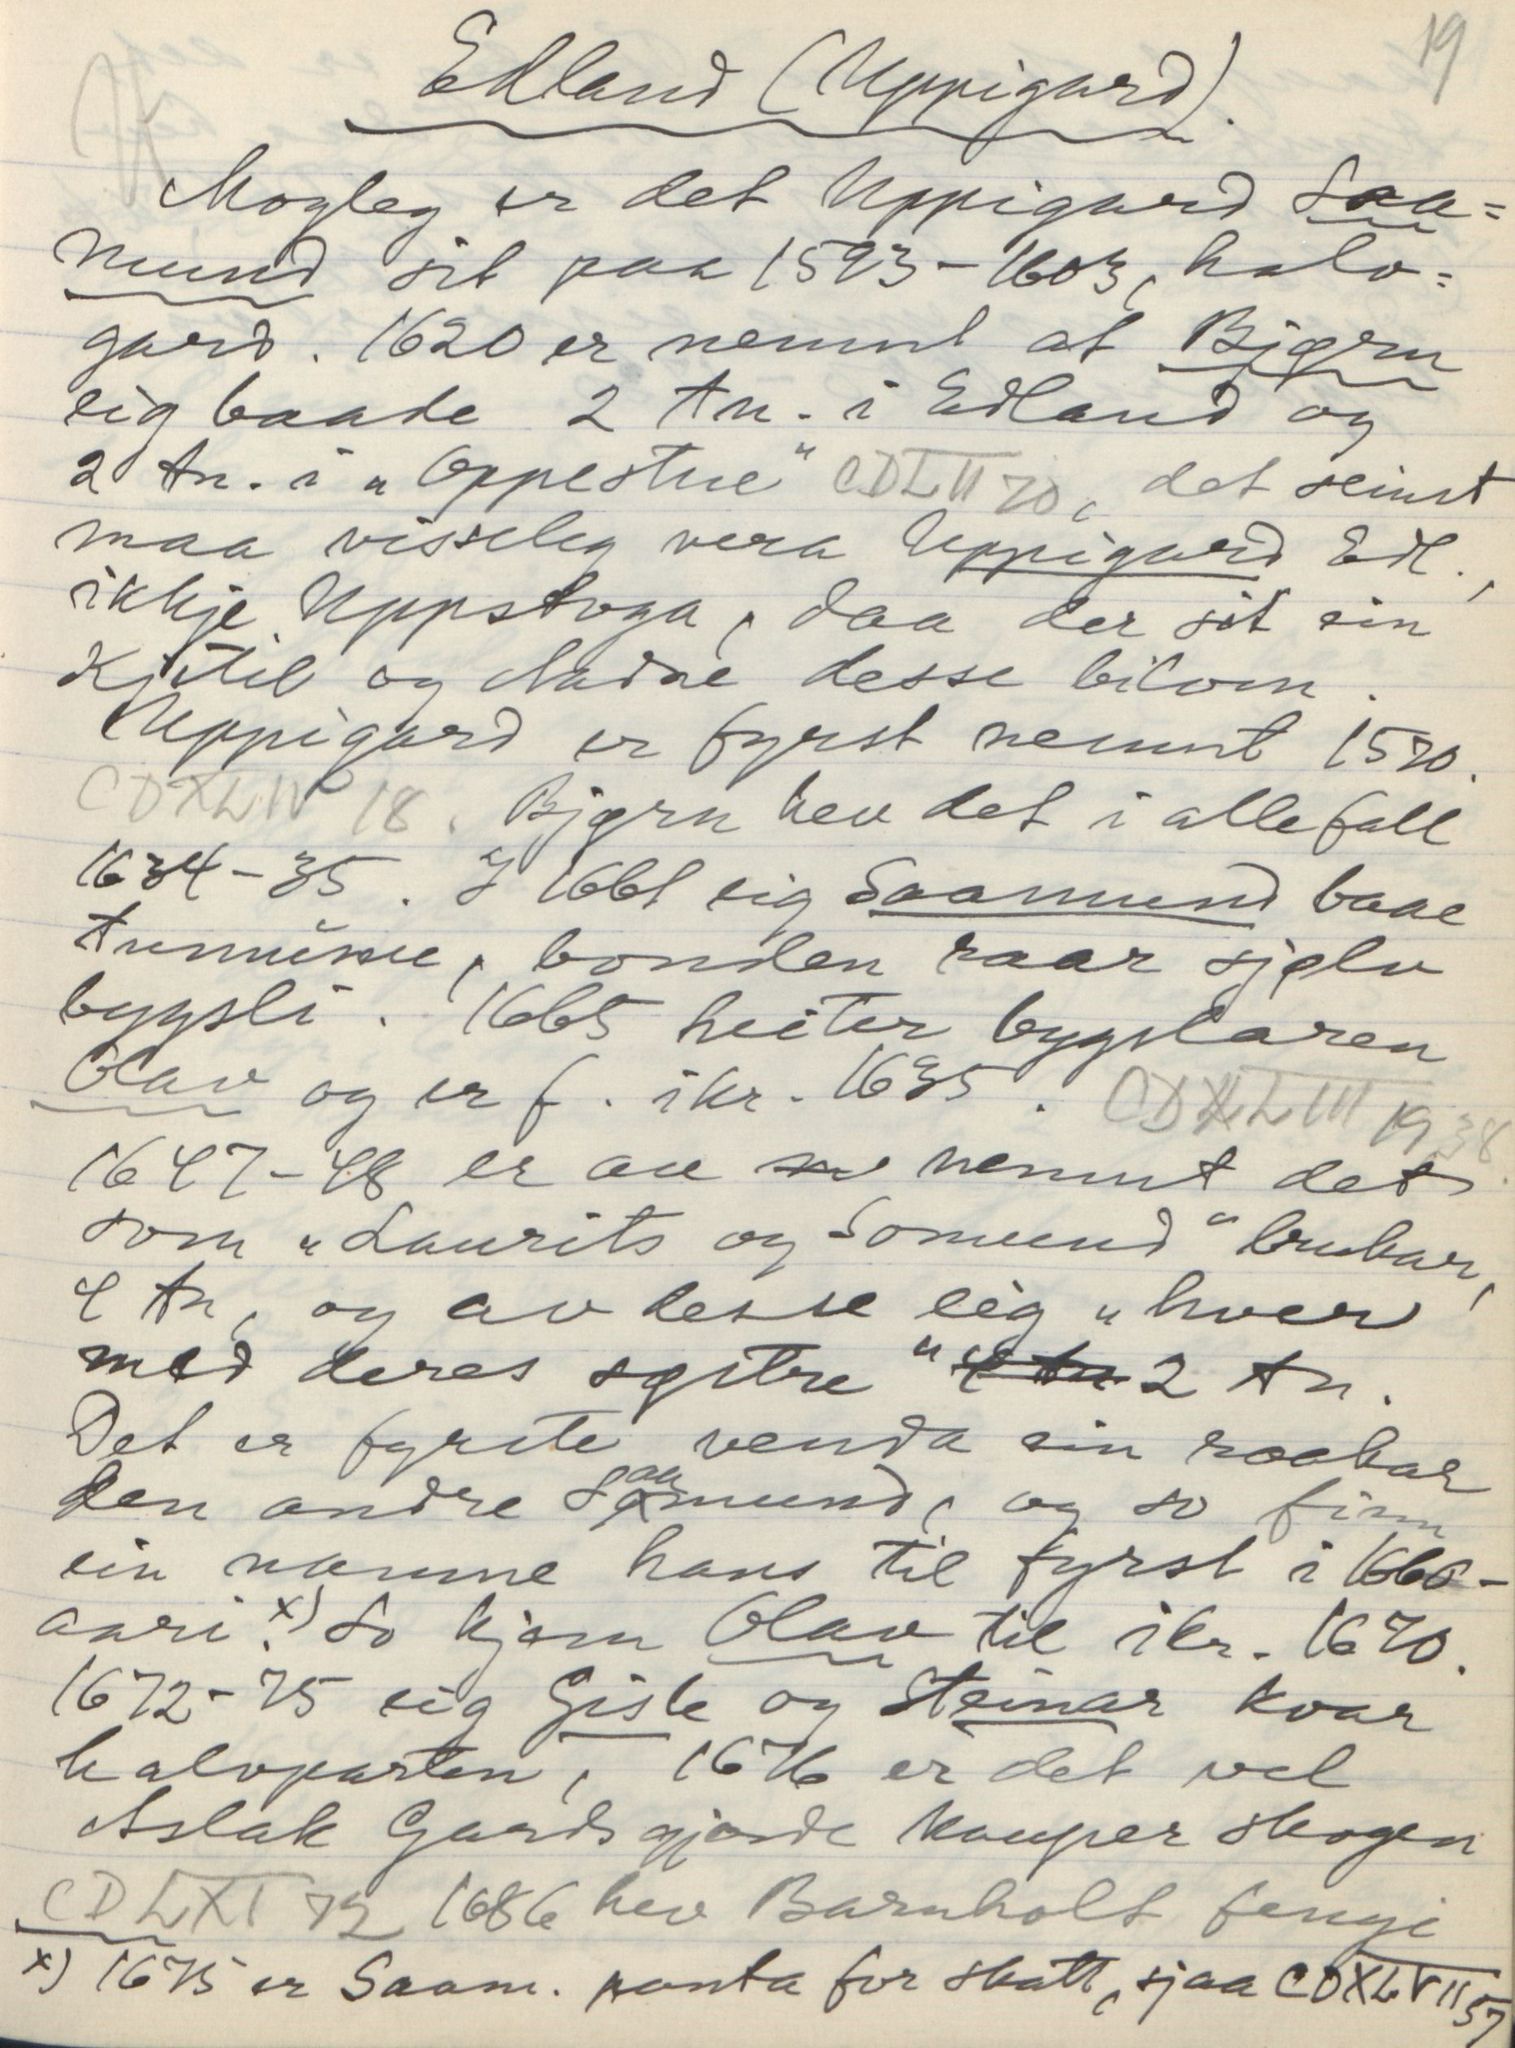 19
Edland (Uppigard).
Mogleg er det Uppigard Saa=
mund sit paa 1593-1603, halv=
gard. 1620 er nemnt at Bjørn
eig baade 2 tn. i Edland og
2 tn. i „Oppestue" CDLII 70, det seinst
maa visseleg vera Uppigard Edl.,
ikkje Uppstoga, daa der sit ein
Kjetil og Aadne desse bilom.
Uppigard er fyrst nemnt 1570.
CDXLIV 18. Bjørn hev det i allefall
1634-35. I 1661 eig Saamund baae
tunnune, bonden raar sjølv
bygsli. 1665 heiter bygslaren
Olav og er f. ikr. 1635. CDXLIII 19, 38.
1647-48 er au nemnt det
som „Laurits og Somund" brukar,
4 tn, og av desse eig „hver
med deres søstre" 2 tn.
Det er fyrste venda ein raakar
den andre Saamund, og so finn
ein namne hans til fyrst i 1660-
aari.x) So kjem Olav til ikr. 1670.
1672-75 eig Gisle og Steinar kvar
halvparten, 1676 er det vel
Aslak Gardsgjorde kauper skogen
CDLXI 72 1686 hev Barnholt fengi
x) 1675 er Saam. panta for skatt, sjaa CDXLVII 57